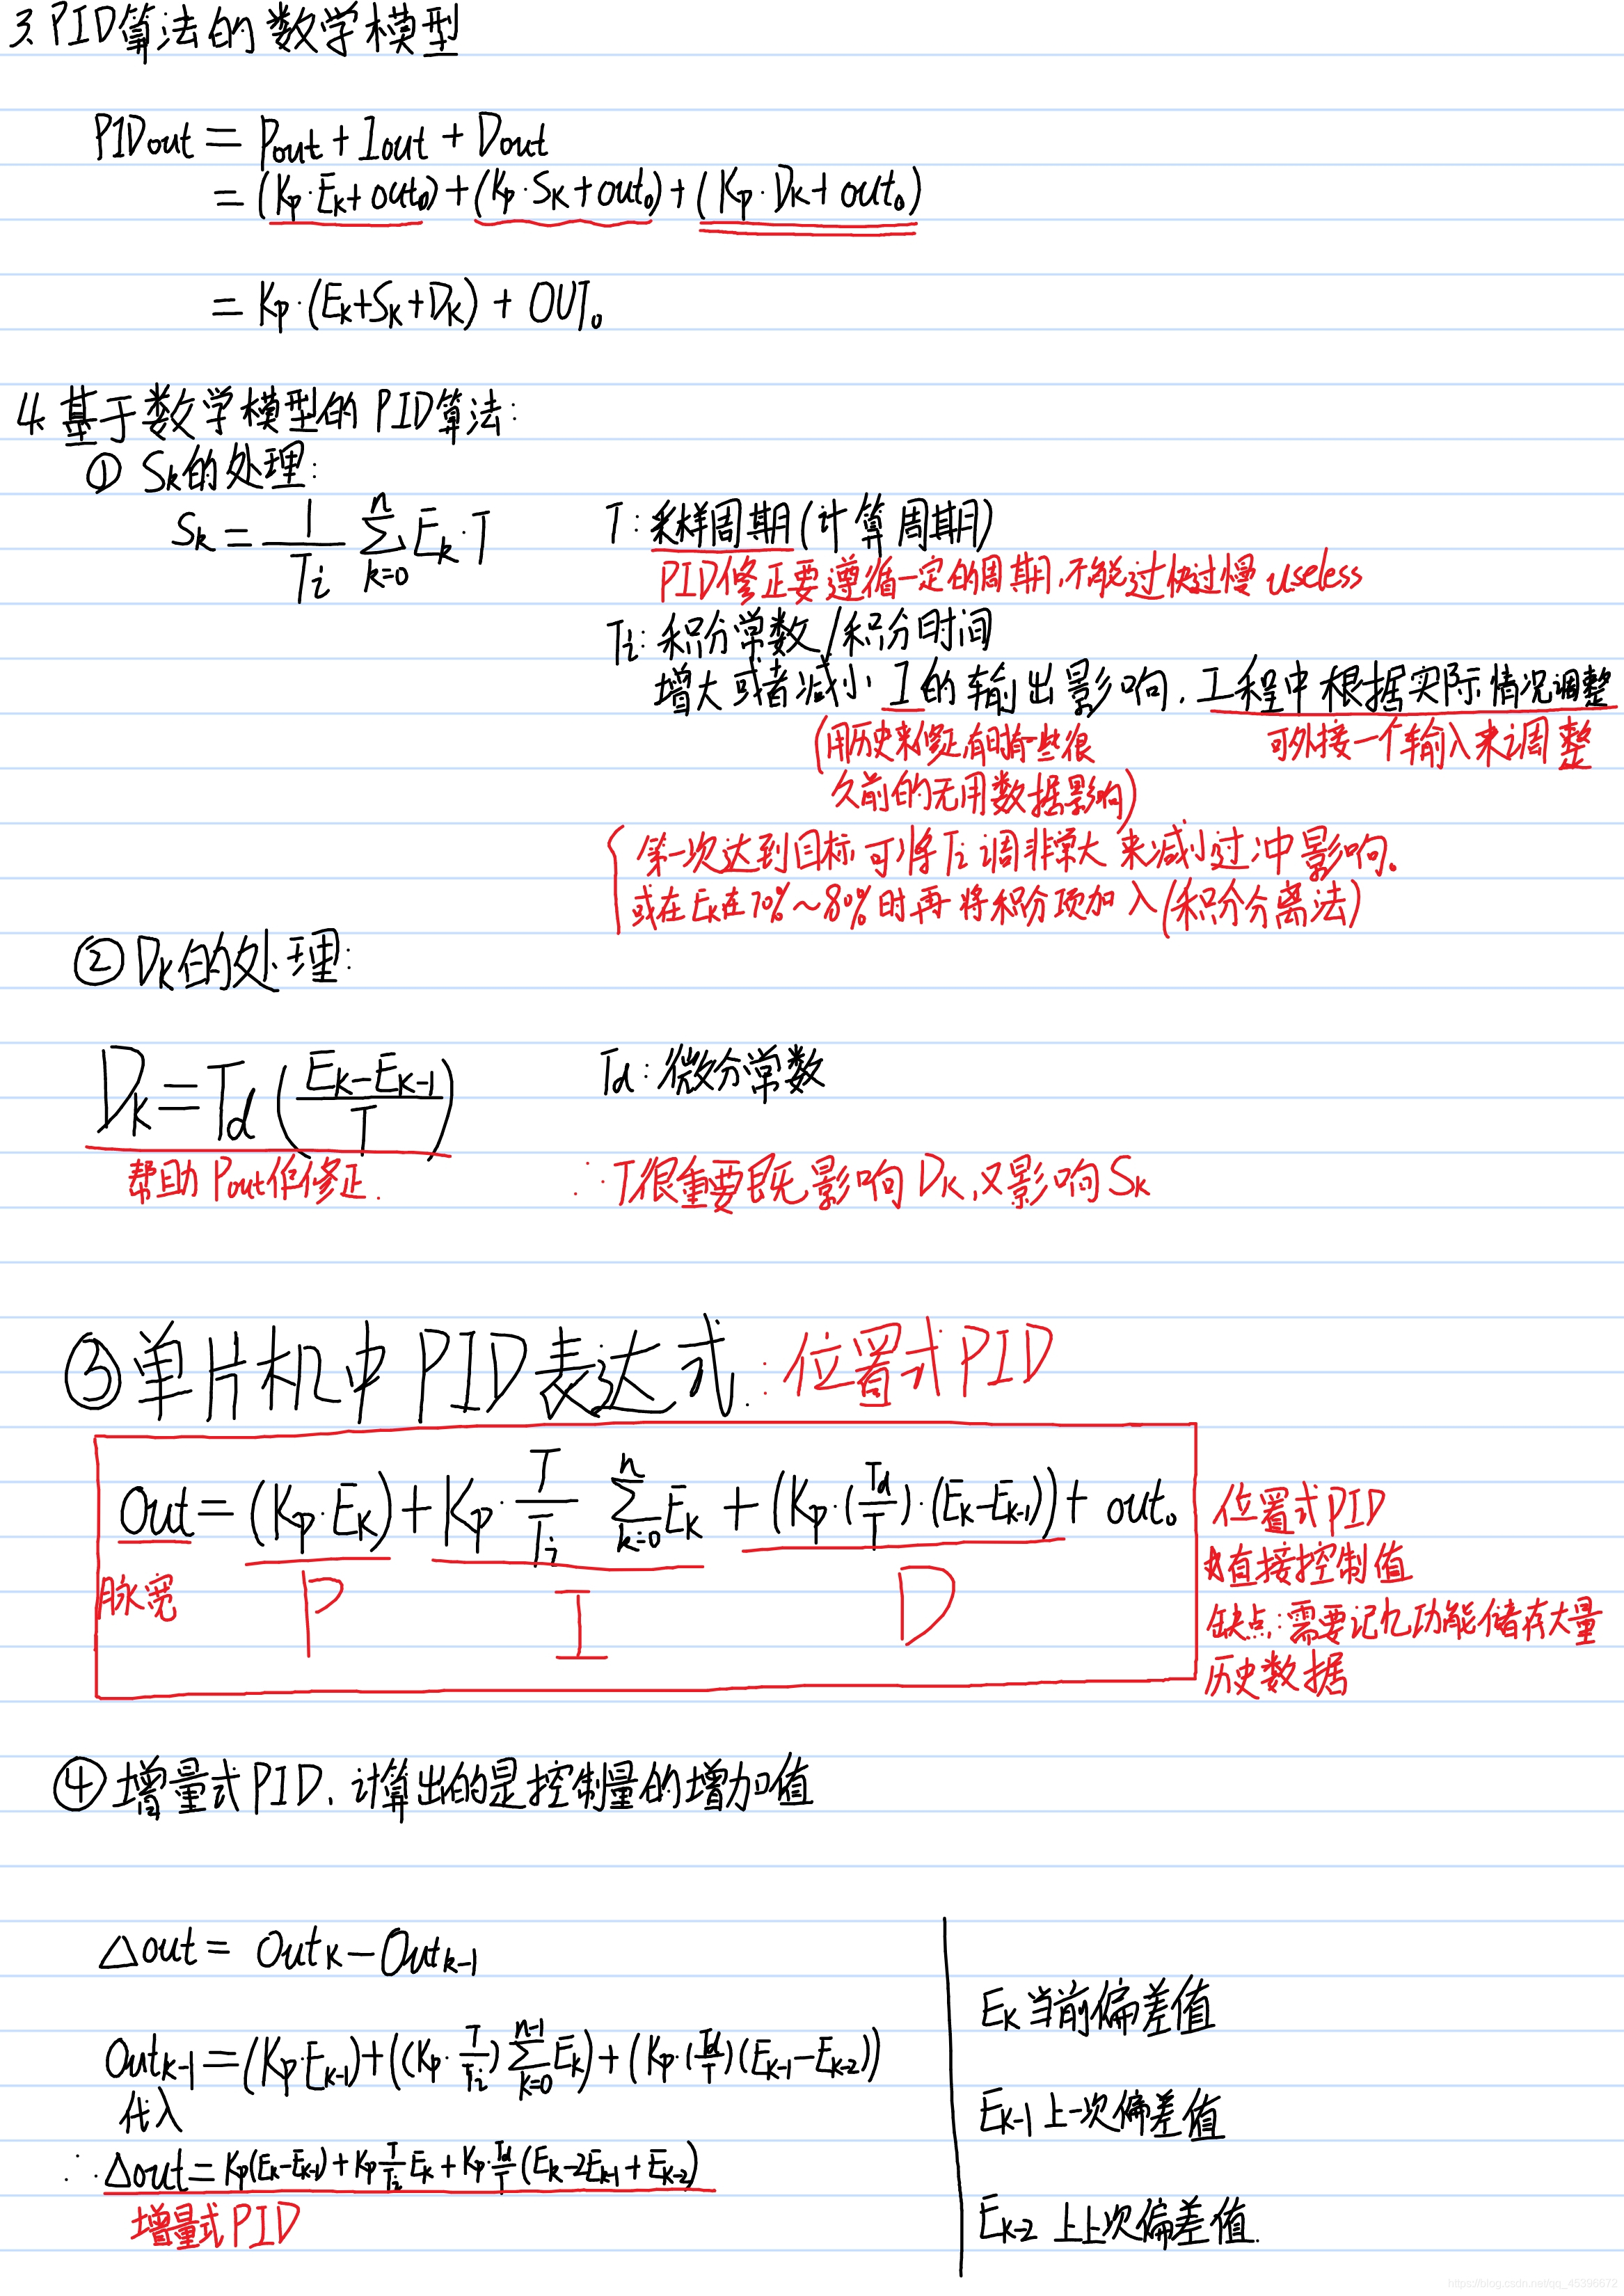 3. PID算法的数学模型
PIDout = Pout + Iout + Dout
= (Kp·Ek+out₀)+(Kp·Sk+out₀)+(Kp·Dk+out₀)
= Kp·(Ek+Sk+Dk) + OUT₀
4. 基于数学模型的PID算法:
① Sk的处理:
Sk = 1/Ti Σ(k=0→n) Ek·T
T: 采样周期(计算周期)
PID修正要遵循一定的周期,不能过快过慢 useless
Ti: 积分常数/积分时间
增大或者减小 I 的输出影响,工程中根据实际情况调整
(用历史来修正有时有一些很
久前的无用数据影响)
可外接一个输入来调整
第一次达到目标可将Ti调非常大 来减小过冲影响.
或在Ek在70%~80%时再将积分项加入(积分分离法)
② Dk的处理:
Dk = Td((Ek-Ek-1)/T)
Td: 微分常数
帮助Pout作修正.
∵T很重要既影响Dk,又影响Sk
③ 单片机中PID表达式: 位置式PID
Out = (Kp·Ek) + Kp·T/Ti Σ(k=0→n) Ek + (Kp·(Td/T)·(Ek-Ek-1)) + out₀
脉宽
P I D
位置式PID
直接控制值
缺点:需要记忆功能储存大量
历史数据
④ 增量式PID,计算出的是控制量的增加值
△out = Outk - Outk-1
Outk-1 = (Kp·Ek-1)+((Kp·T/Ti) Σ(k=0→n-1) Ek)+(Kp·(Td/T)(Ek-1-Ek-2))
代入
∴△out = Kp(Ek-Ek-1)+Kp T/Ti Ek+Kp·Td/T(Ek-2Ek-1+Ek-2)
增量式PID
Ek 当前偏差值
Ek-1 上一次偏差值
Ek-2 上上次偏差值.